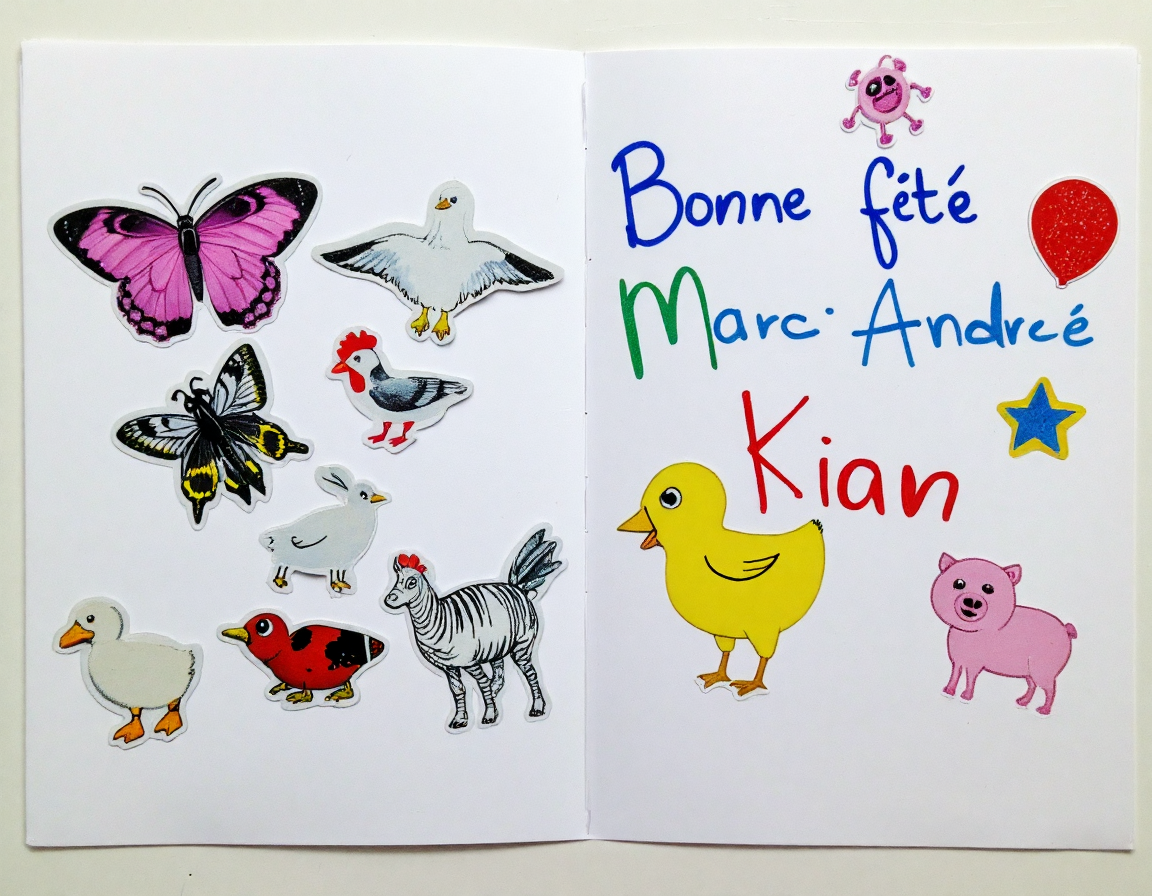 Bonne fété
Marc-Andrcé
Kian